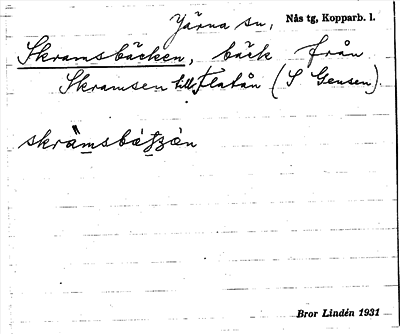 Järna sn, Nås tg, Kopparb. l.
Skramsbäcken, bäck från
Skramsen till Flatån (S Gensen)
Bror Lindén 1931